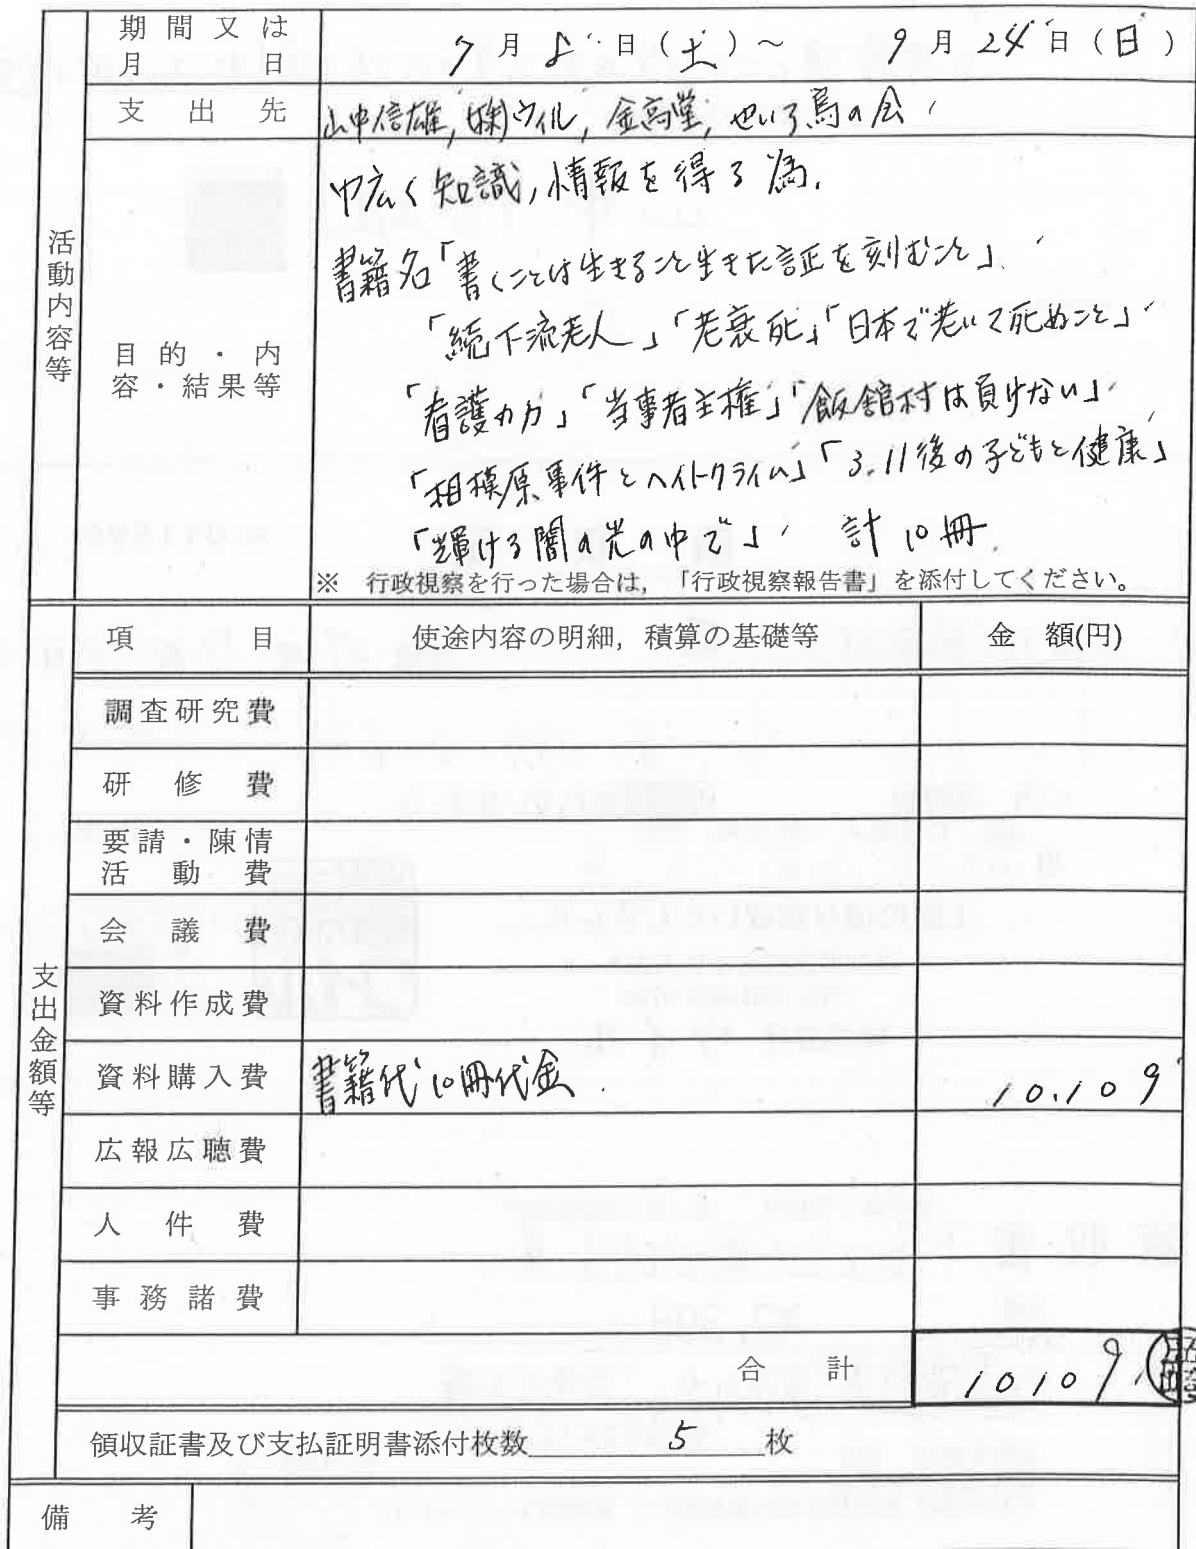 期間又は
月日
7月8日(土)～9月24日(日)
支出先
山中信雄, (株)ウイル, 金高堂, せいろ鳥の会
活動内容等
目的・内
容・結果等
巾広く知識,情報を得る為.
書籍名「書くことは生きること生きた証を刻むこと」
「続下流老人」「老衰死」「日本で老いて死ぬこと」
「看護の力」「当事者主権」「飯舘村は負けない」
「相模原事件とヘイトクライム」「3.11後の子どもと健康」
「輝ける闇の光の中で」 計10冊.
※ 行政視察を行った場合は,「行政視察報告書」を添付してください。
支出金額等
項目 使途内容の明細, 積算の基礎等 金額(円)
調査研究費
研修費
要請・陳情
活動費
会議費
資料作成費
資料購入費 書籍代10冊代金. 10.109
広報広聴費
人件費
事務諸費
合計 10109
領収証書及び支払証明書添付枚数 5 枚
備考